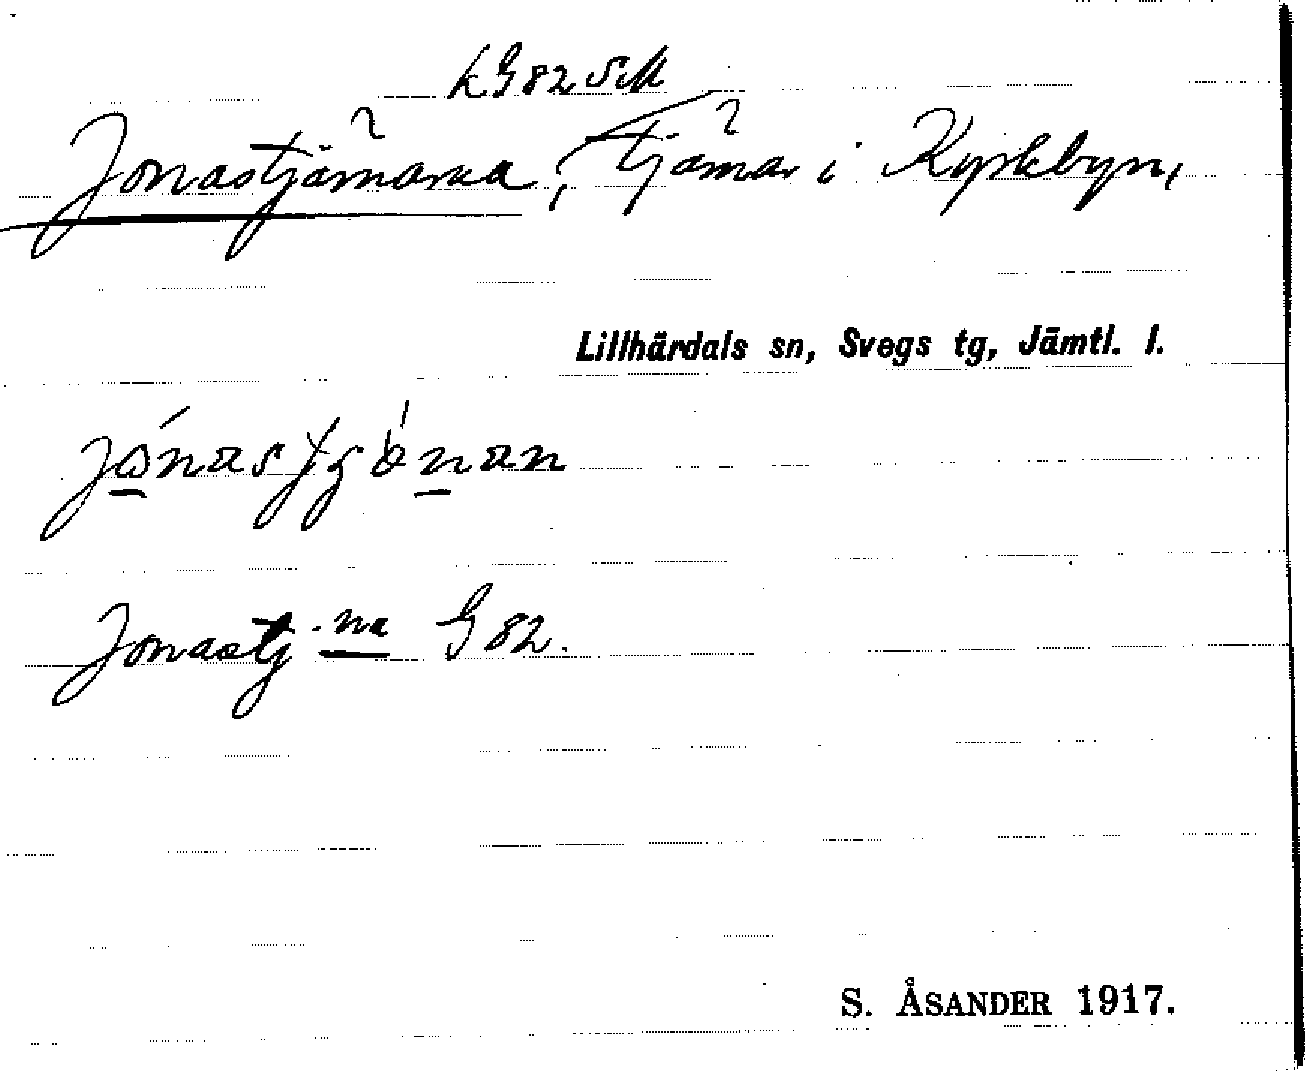 k G 82 SM
Jonastjärnarna, tjärnar i Kyrkbyn,
Lillhärdals sn, Svegs tg, Jämtl. l.
Jonastj. na G 82.
S. ÅSANDER 1917.